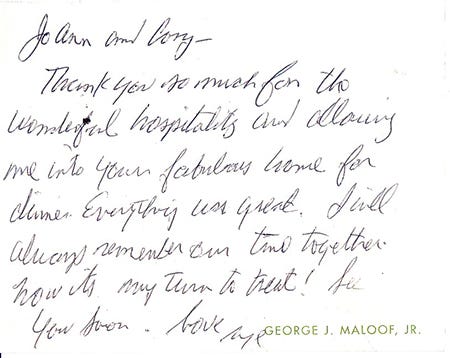 JoAnn and Cory—
Thank you so much for the
wonderful hospitality and allowing
me into your fabulous home for
dinner. Everything was great. I will
always remember our time together.
now it's my turn to treat! See
you soon. Love
GEORGE J. MALOOF, JR.